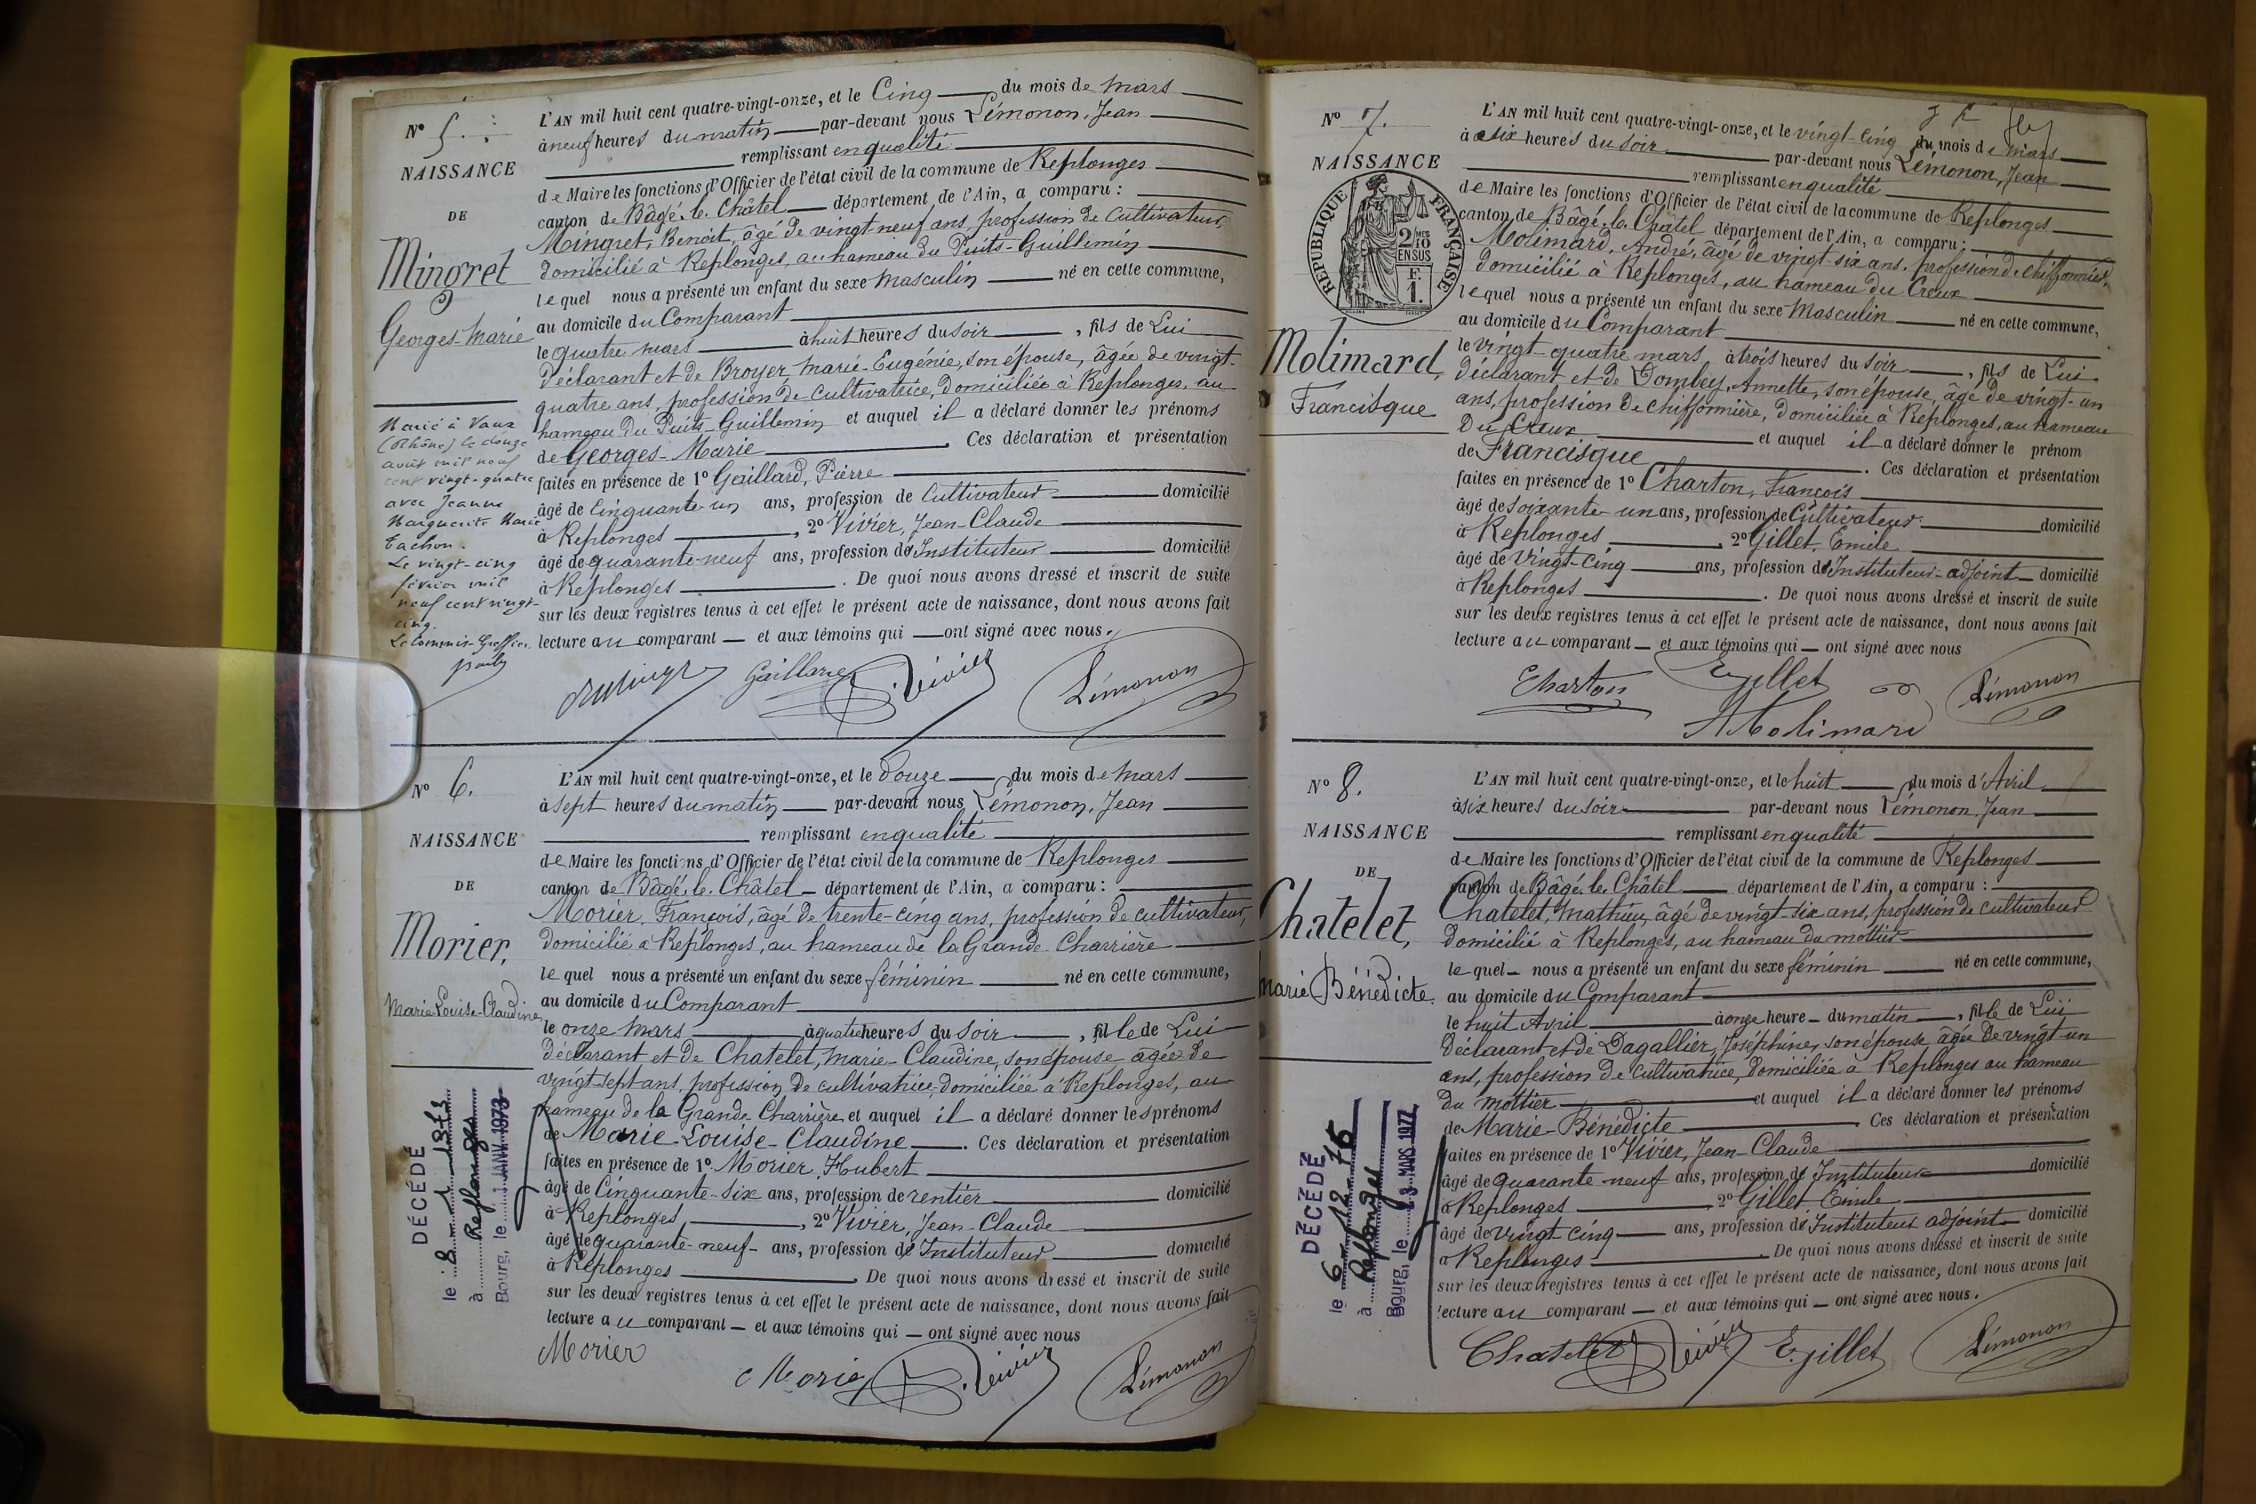 N° 5.
NAISSANCE
DE
Mingret
Georges-Marie
Marié à Vaux
(Rhône) le douze
août mil neuf
cent vingt-quatre
avec Jeanne
Marguerite Marie
Tachon.
Le vingt-cinq
février mil
neuf cent vingt-
cinq.
Le Commis-Greffier
L'AN mil huit cent quatre-vingt-onze, et le Cinq du mois de Mars
à neuf heures du matin par-devant nous Lémonon, Jean
remplissant en qualité
de Maire les fonctions d'Officier de l'état civil de la commune de Replonges
canton de Bâgé-le-Châtel département de l'Ain, a comparu :
Mingret, Benoit, âgé de vingt-neuf ans, profession de Cultivateur,
domicilié à Replonges, au hameau du Puits-Guillemin
lequel nous a présenté un enfant du sexe masculin né en cette commune,
au domicile du Comparant
le quatre mars à huit heures du soir, fils de Lui
déclarant et de Broyer, Marie-Eugénie, son épouse, âgée de vingt-
quatre ans, profession de cultivatrice, domiciliée à Replonges, au
hameau du Puits-Guillemin et auquel il a déclaré donner les prénoms
de Georges-Marie. Ces déclaration et présentation
faites en présence de 1° Gaillard, Pierre
âgé de Cinquante-un ans, profession de Cultivateur domicilié
à Replonges, 2° Vivier, Jean-Claude
âgé de quarante-neuf ans, profession d'Instituteur domicilié
à Replonges. De quoi nous avons dressé et inscrit de suite
sur les deux registres tenus à cet effet le présent acte de naissance, dont nous avons fait
lecture au comparant et aux témoins qui ont signé avec nous.
Gaillard Vivier Lémonon
N° 6.
NAISSANCE
DE
Morier,
Marie-Louise-Claudine
DÉCÉDÉ
le 8-1-1973
à Replonges
Bourg, le 1 JANV. 1973
L'AN mil huit cent quatre-vingt-onze, et le douze du mois de Mars
à sept heures du matin par-devant nous Lémonon, Jean
remplissant en qualité
de Maire les fonctions d'Officier de l'état civil de la commune de Replonges
canton de Bâgé-le-Châtel département de l'Ain, a comparu :
Morier, François, âgé de trente-cinq ans, profession de cultivateur,
domicilié à Replonges, au hameau de la Grande-Charrière
lequel nous a présenté un enfant du sexe féminin né en cette commune,
au domicile du Comparant
le onze Mars à quatre heures du soir, fille de Lui
déclarant et de Chatelet, Marie-Claudine, son épouse âgée de
vingt-sept ans, profession de cultivatrice, domiciliée à Replonges, au
hameau de la Grande Charrière, et auquel il a déclaré donner les prénoms
de Marie-Louise-Claudine. Ces déclaration et présentation
faites en présence de 1° Morier, Hubert
âgé de Cinquante-six ans, profession de rentier domicilié
à Replonges, 2° Vivier, Jean-Claude
âgé de quarante-neuf ans, profession d'Instituteur domicilié
à Replonges. De quoi nous avons dressé et inscrit de suite
sur les deux registres tenus à cet effet le présent acte de naissance, dont nous avons fait
lecture au comparant et aux témoins qui ont signé avec nous
Morier
Morier Vivier Lémonon
N° 7.
NAISSANCE
RÉPUBLIQUE FRANÇAISE
2/10
EN SUS
F.
1.
Molimard,
Francisque
L'AN mil huit cent quatre-vingt-onze, et le vingt-cinq du mois de Mars
à six heures du soir par-devant nous Lémonon, Jean
remplissant en qualité
de Maire les fonctions d'Officier de l'état civil de la commune de Replonges
canton de Bâgé-le-Châtel département de l'Ain, a comparu :
Molimard, André, âgé de vingt-six ans, profession de chiffonnier,
domicilié à Replonges, au hameau du Creux
lequel nous a présenté un enfant du sexe Masculin né en cette commune,
au domicile du Comparant
le vingt-quatre mars, à trois heures du soir, fils de Lui
déclarant et de Dombey, Annette, son épouse, âgé de vingt-un
ans, profession de chiffonnière, domiciliée à Replonges, au hameau
du Creux et auquel il a déclaré donner le prénom
de Francisque. Ces déclaration et présentation
faites en présence de 1° Charton, François
âgé de soixante-un ans, profession de Cultivateur domicilié
à Replonges, 2° Gillet, Emile
âgé de Vingt-cinq ans, profession d'Instituteur-adjoint domicilié
à Replonges. De quoi nous avons dressé et inscrit de suite
sur les deux registres tenus à cet effet le présent acte de naissance, dont nous avons fait
lecture au comparant et aux témoins qui ont signé avec nous
Charton E. Gillet Lémonon
A Molimard
N° 8.
NAISSANCE
DE
Chatelet,
Marie Bénédicte.
DÉCÉDÉ
le 6-12-76
à Replonges
Bourg, le 3 MARS 1977
L'AN mil huit cent quatre-vingt-onze, et le huit du mois d'Avril
à six heures du soir par-devant nous Lémonon, Jean
remplissant en qualité
de Maire les fonctions d'Officier de l'état civil de la commune de Replonges
canton de Bâgé-le-Châtel département de l'Ain, a comparu :
Chatelet, Mathieu, âgé de vingt-six ans, profession de cultivateur
domicilié à Replonges, au hameau du mottier
lequel nous a présenté un enfant du sexe féminin né en cette commune,
au domicile du Comparant
le huit Avril à onze heure du matin, fille de Lui
déclarant et de Dagallier, Joséphine, son épouse âgée de vingt-un
ans, profession de cultivatrice, domiciliée à Replonges au hameau
du mottier et auquel il a déclaré donner les prénoms
de Marie-Bénédicte Ces déclaration et présentation
faites en présence de 1° Vivier, Jean-Claude
âgé de quarante-neuf ans, profession d'Instituteur domicilié
à Replonges 2° Gillet Emile
âgé de vingt cinq ans, profession d'Instituteur adjoint domicilié
à Replonges. De quoi nous avons dressé et inscrit de suite
sur les deux registres tenus à cet effet le présent acte de naissance, dont nous avons fait
lecture au comparant et aux témoins qui ont signé avec nous.
Chatelet Vivier E. Gillet Lémonon